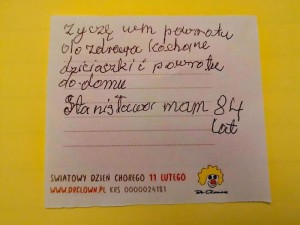 Życzę wam powrotu
do zdrowia kochane
dzieciaszki i powrotu
do domu
Stanisława mam 84
lat
ŚWIATOWY DZIEŃ CHOREGO 11 LUTEGO
WWW.DRCLOWN.PL KRS 0000024181
Dr Clown